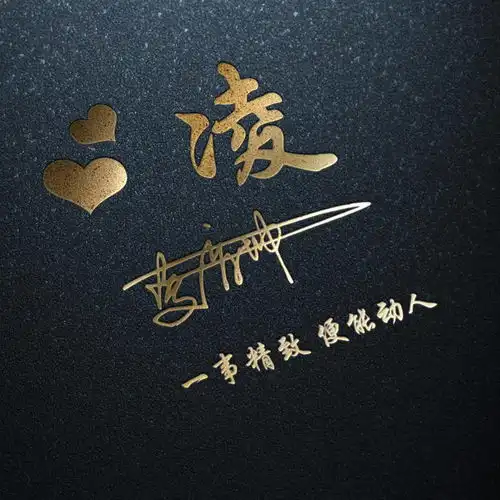 凌
一事精致 便能动人